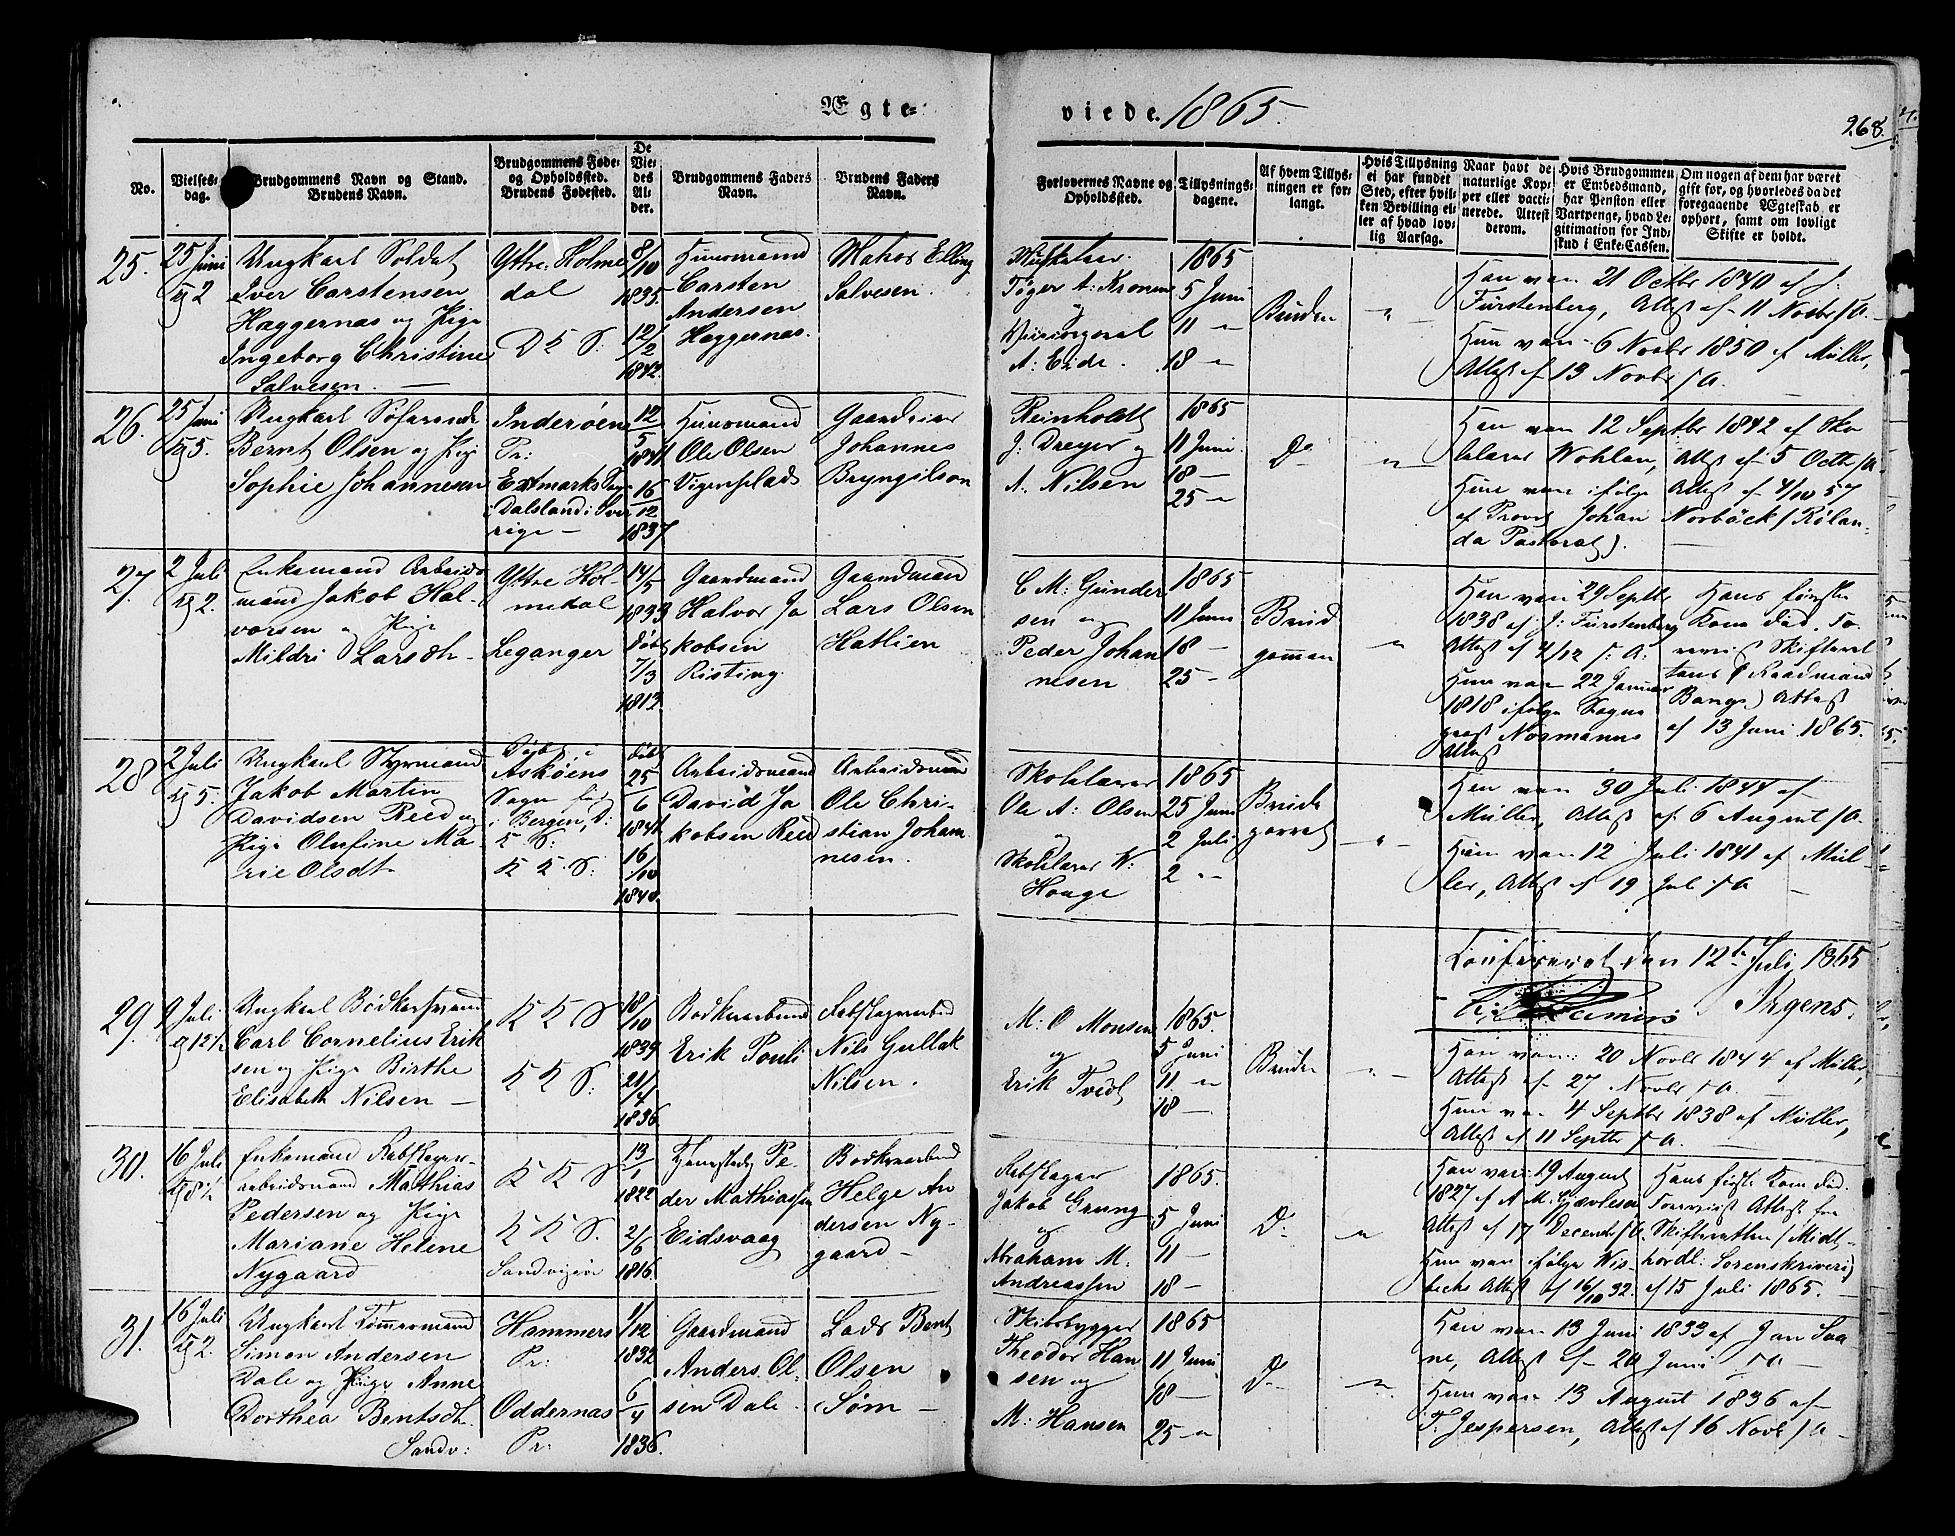 Ægte-
viede. 1865.
268.
No.
Vielses-
dag.
Brudgommens Navn og Stand.
Brudens Navn.
Brudgommens Føde-
og Opholdssted.
Brudens Fødested.
De
Vie-
des
Al-
der.
Brudgommens Faders
Navn.
Brudens Faders
Navn.
Forlovernes Navne og
Opholdssted.
Tillysnings-
dagene.
Af hvem Tillys-
ningen er for-
langt.
Hvis Tillysning
ei har fundet
Sted, efter hvil-
ken Bevilling el-
ler af hvad lov-
lig Aarsag.
Naar havt de
naturlige Kop-
per eller vacci-
nerede. Attest
derom.
Hvis Brudgommen
er Embedsmand,
har Pension eller
Vartpenge, hvad Le-
gitimation for Ind-
skud i Enke-Cassen.
Om nogen af dem har været
gift før, og hvorledes da det
foregaaende Ægteskab er
ophørt, samt om lovligt
Skifte er holdt.
25.
25 Juni
Kl 2
Ungkarl Soldat
Iver Carstensen
Haggernæs og Pige
Ingeborg Christine
Salvesen. —
Yttre Holme
dal
D K S:
8/10
1835
12/2
1842
Huusmand
Carsten
Andersen
Haggernæs.
Matros Elling
Salvesen.
Tøger A: Kronen
og
A: Eide.
1865
5 Juni
11 -
18 -
Bruden
Han vac. 21 Octbr 1840 af J:
Fürstenberg, Attest af 11 Novbr s. A.
Hun vac. 6 Novbr 1850 af Müller,
Attest af 13 Novbr s. A.
26.
25 Juni
Kl 5.
Ungkarl Søfarende
Bernt Olsen og Pige
Sophie Johannesen
Inderøens
Pr:
Dalsland i Sve
rige —
12/5
1841
16/12
1837
Huusmand
Ole Olsen
Vigenspladß
Gaardeier
Johannes
Bryngilson
Reinholdt
J: Dreyer og
A: Nilsen
1865
11 Juni.
18 -
25 -
Do
Han vac. 12 Septbr 1842 af Sko
lelærer Wohlan, Attest af 5 Octbr s. A
Hun vac. ifølge Attest af 4/10 57
af Provst Johan Norbäck (Röla
da Pastorat).
27.
2 Juli
Kl 2.
Enkemand Arbeids
mand Jakob Hal-
vorsen og Pige
Mildri Larsdtr
Yttre Hol-
medal
Leganger
14/5
1833
Døbt
7/3
1813
Gaardmand
Halvor Ja
kobsen
Risting.
Gaardmand
Lars Olsen
Hatlien
C M: Gunder
sen og
Peder Johan
nesen
1865
11 Juni
18 -
25 -
Brud
gommen
Han vac 29 Septbr
1838 af J: Fürstenberg
Attest af 4/12 s: A:
Hun vac 22 Januar
1818 ifølge Sogne
præst Normanns
Attest
Hans første
Kone død. Fo
reviist Skifteret
tens (Raadmand
Bangs) Attest
af 13 Juni 1865.
28
2 Juli
Kl 5.
Ungkarl Styrmand
Jakob Martin
Davidsen Reed og
Pige Olufine Ma-
rie Olsdtr
Døbt i
Askøens
Sogn født
i Bergen, D:
K S:
K K S:
Født
25/6
1841
16/10
1840.
Arbeidsmand
David Ja
kobsen Reed
Arbeidsmand
Ole Chri-
stian Johan
nesen.
Skolelærer
Ole A: Olsen
og
Skolelærer N:
Hauge
1865
25 Juni
2 Juli
2 -
Brude
parret
Han vac. 30 Juli 1844 af
Müller, Attest af 6 August s. A.
Hun vac. 12 Juli 1841 af Mül-
ler, Attest af 19 Juli s. A —
Confereret den 12te Juli 1865
Irgens.
29.
9 Juli
Kl 12½
Ungkarl Bødkersvend
Carl Cornelius Erik
sen og Pige Birthe
Elisabeth Nilsen —
K K S
K K S:
18/10
1839
21/4
1836
Bødkerarbeid
Erik Pouls
Rebslagerarbeid
Nils Gullak
Nilsen.
M: O Monsen
og
Erik Tvedt
1865.
5 Juni
11 -
18 -
Bruden
Han vac: 20 Novbr 1844 af Müller,
Attest af 27 Novbr s. A.
Hun vac 4 Septbr 1838 af Müller,
Attest af 11 Septbr s. A.
30.
16 Juli
Kl 8½
Enkemand Rebslager-
arbeidsmand Mathias
Pedersen og Pige
Mariane Helene
Nygaard
K K S
K K S.
Sandvigen
13/1
1822
2/6
1816
Pe
der Mathiassen
Eidsvaag
Bødkerarbeid
Helge An
dersen Ny-
gaard —
Rebslager
Jakob Grung
og
Abraham M:
Andreassen
1865.
5 Juni
11 -
18 -
Do
Han vac: 19 August
1827 af A M: Giævlesen
Attest af 17 Decemb s. A.
Hun ifølge Wis-
bechs Attest af 16/10 32.
Hans første Kone død.
Foreviist Attest fra
Skifteretten (Midt-
hordl: Sorenskriveri)
af 15 Juli 1865. —
31.
16 Juli
Kl 2.
Ungkarl Tømmermand
Simon Andersen
Dale og Pige Anne
Dorthea Bentsdtr.
Sandv:
Hammers
Pr:
Oddernæs
Pr:
1/12
1832
6/4
1836.
Gaardmand
Anders Ol-
sen Dale.
Lods Bent
Olsen
Søm —
Skibsbygger
Theodor Han
sen og
M: Hansen
1865
11 Juni
18 -
25 -
Do
Han vac. 13 Juni 1833 af Jan Saa
ne, Attest af 20 Juni s. A —
Hun vac. 13 August 1836 af
T. Jespersen, Attest af 16 Novbr s. A —